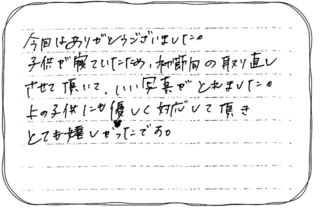 今回はありがとうございました。
子供が寝ていたため、時間の取り直し
させて頂いて、いい写真がとれました。
上の子供にも優しく対応して頂き
とても嬉しかったです。